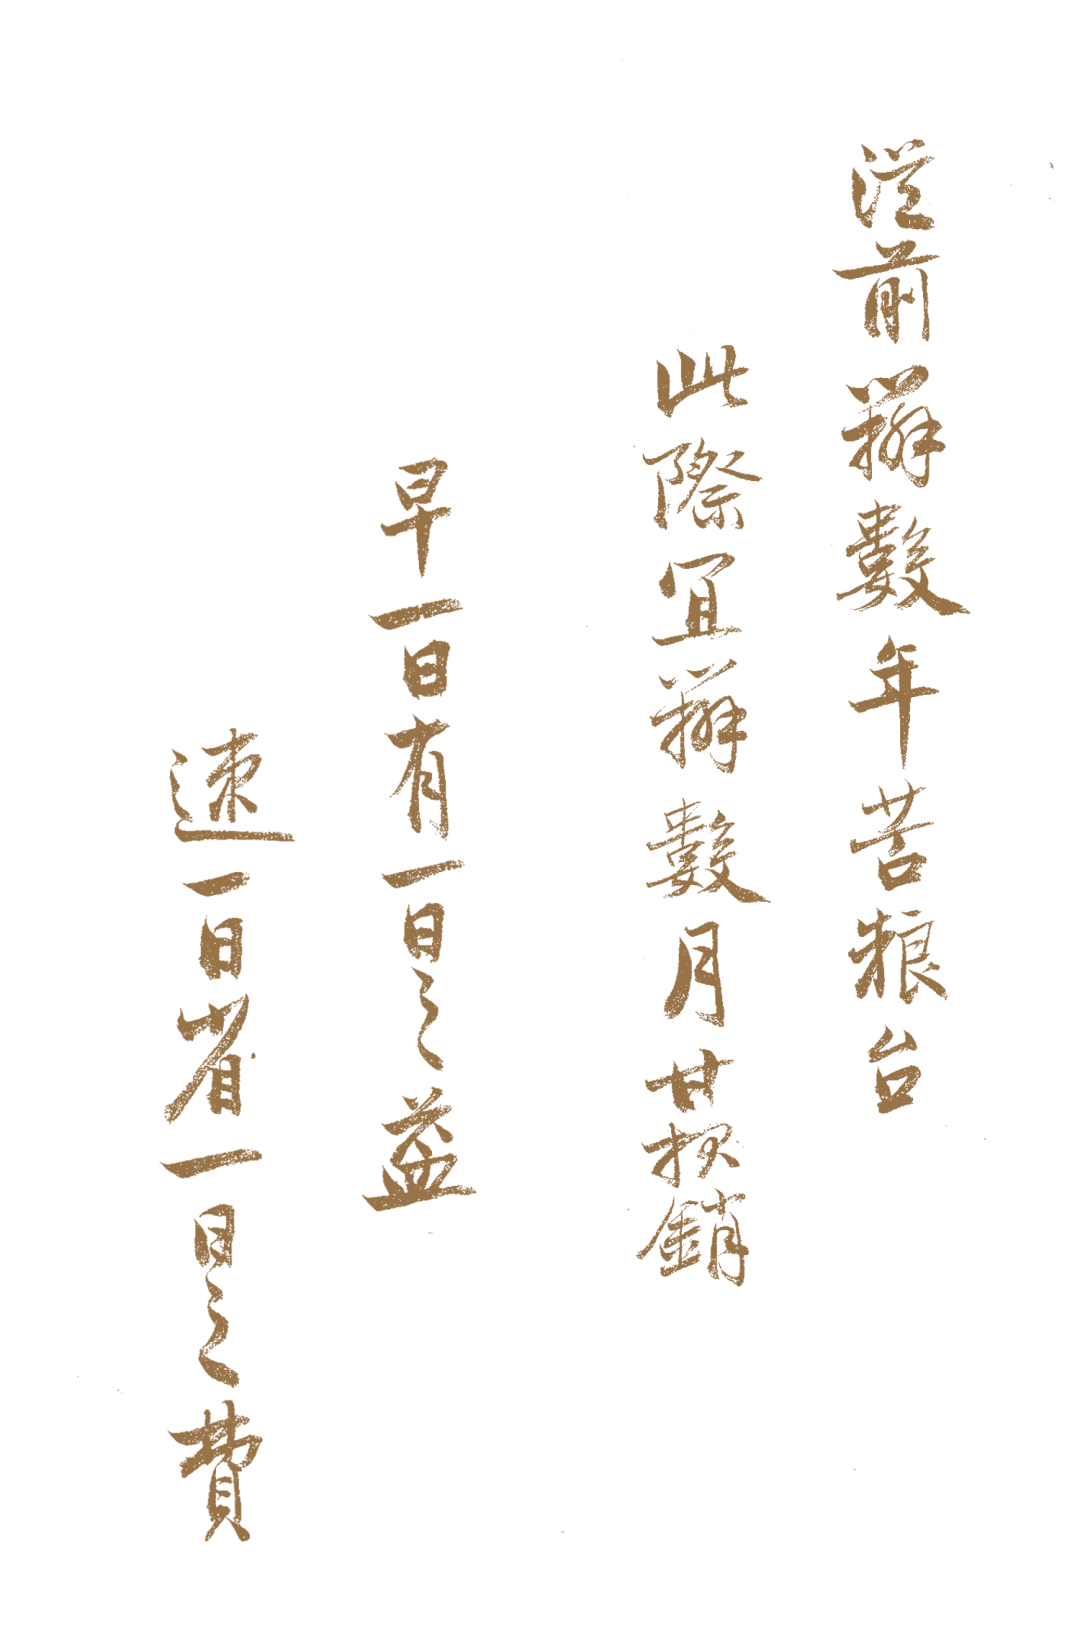 從前辦數年苦粮台
此際宜辦數月甘报銷
早一日有一日之益
速一日省一日之費